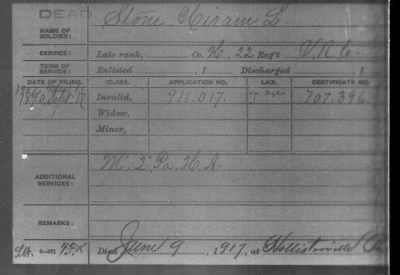 DEAD
NAME OF SOLDIER: Stone Hiram L.
SERVICE: Late rank, Co. H, 22 Reg't V.R.C.
TERM OF SERVICE: Enlisted , 1 Discharged , 1
DATE OF FILING. CLASS. APPLICATION NO. LAW. CERTIFICATE NO.
Invalid, 911.017. 707.396.
Widow,
Minor,
ADDITIONAL SERVICES: M. 2" Pa. H.A.
REMARKS:
Died June 9, 1917, at Hollisterville Pa